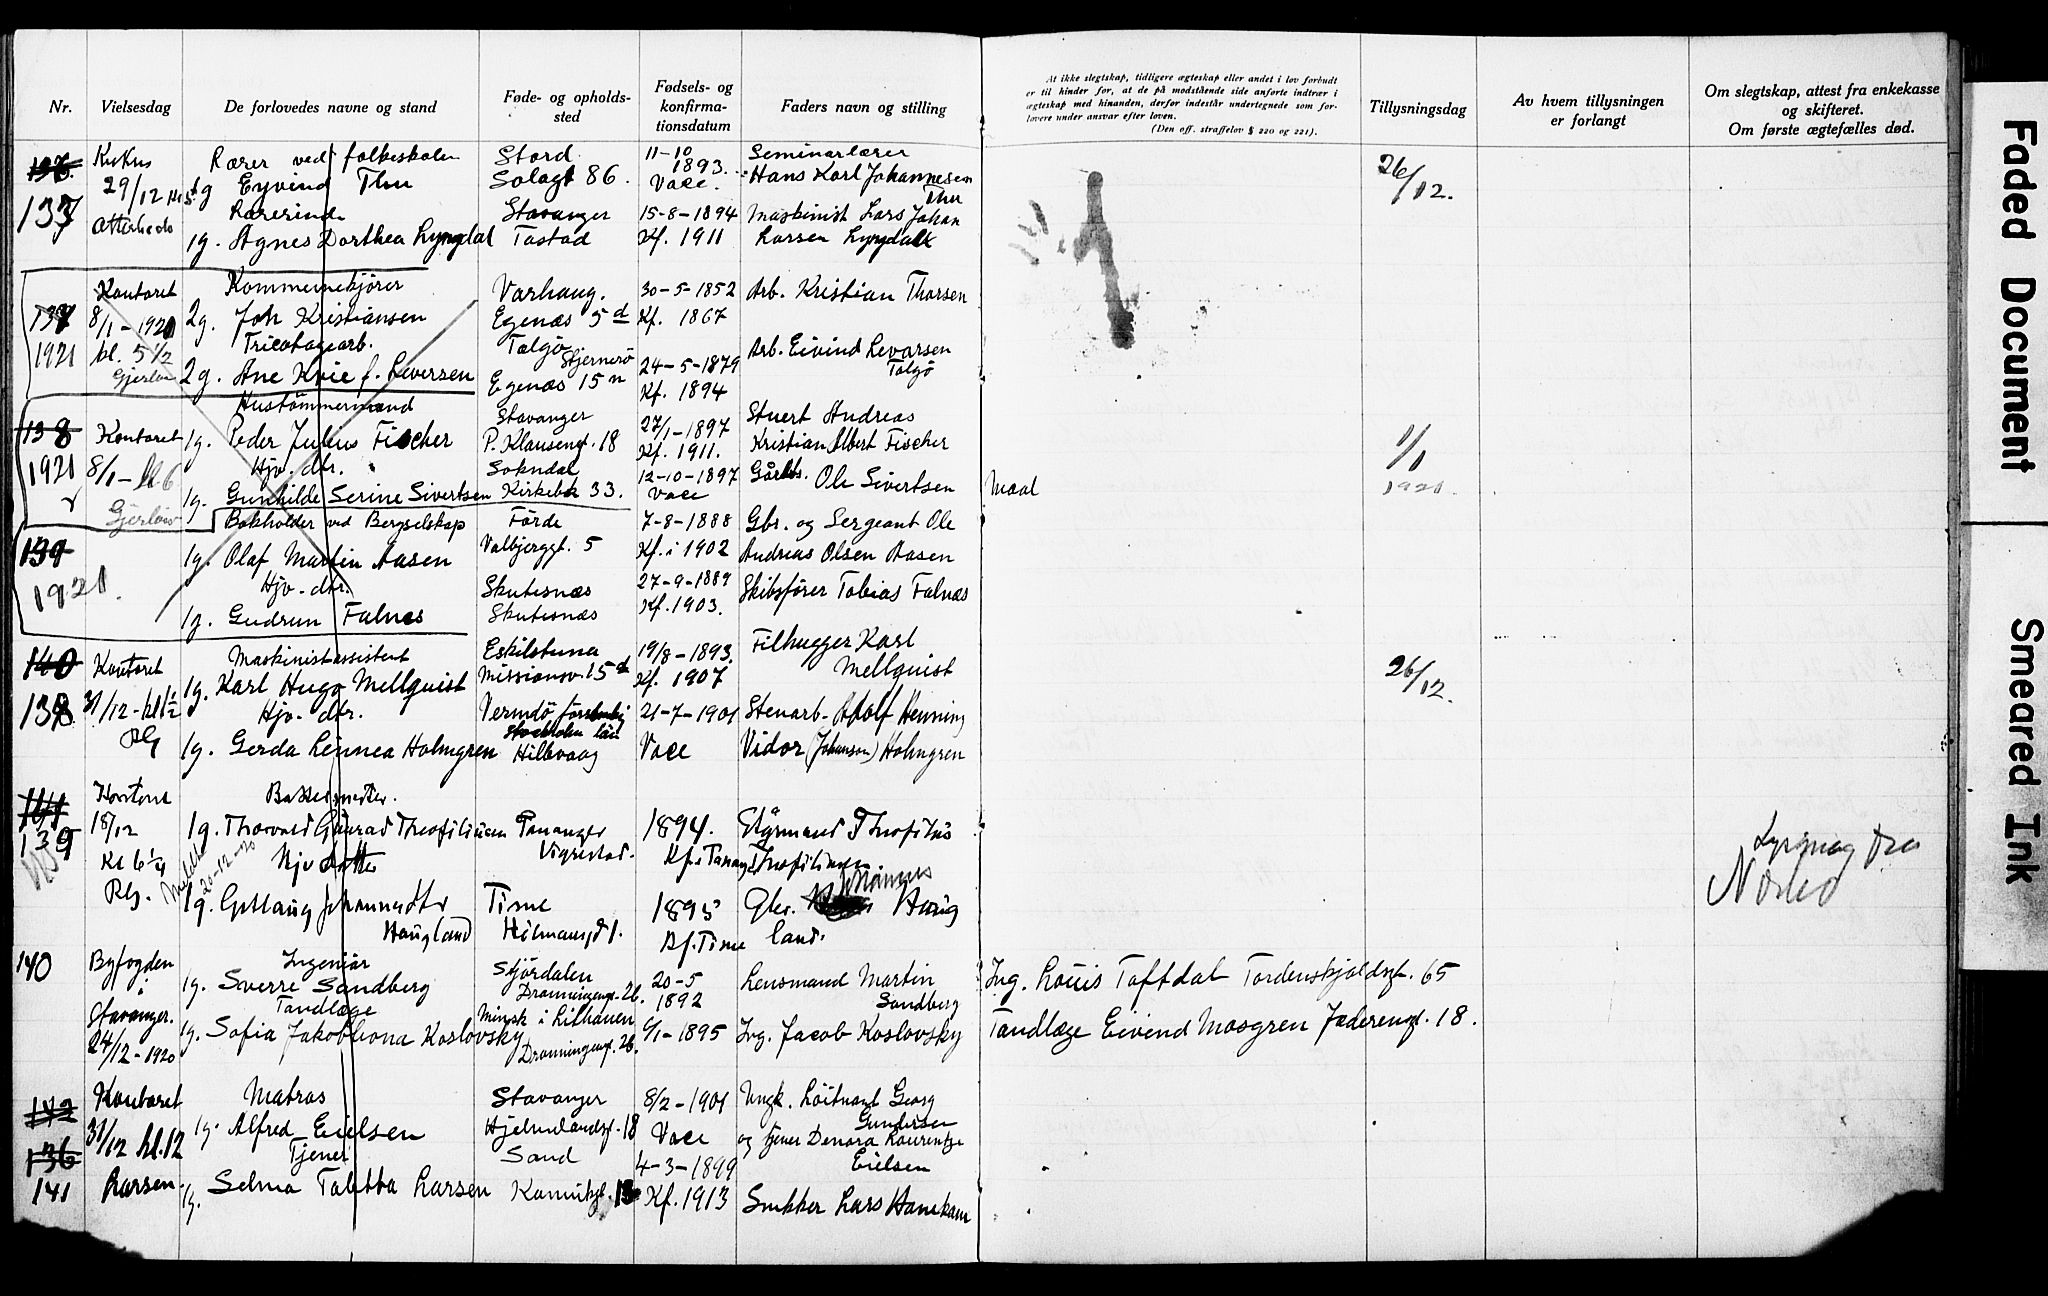 Nr.
Vielsesdag
De forlovedes navne og stand
Føde- og opholds-
sted
Fødsels- og
konfirma-
tionsdatum
Faders navn og stilling
At ikke slegtskap, tidligere ægteskap eller andet i lov forbudt
er til hinder for, at de på modstående side anførte indtrær i
ægteskap med hinanden, derfor indestår undertegnede som for-
lovere under ansvar efter loven.
(Den off. straffelov § 220 og 221).
Tillysningsdag
Av hvem tillysningen
er forlangt
Om slegtskap, attest fra enkekasse
og skifteret.
Om første ægtefælles død.
137
29/12
Lærer ved folkeskolen
1g Eyvind Thu
Lærerinde
1g. Agnes Dorthea Lyngdal
Stord
Solagt 86.
Stavanger
Tastad
11-10
1893
Vacc.
15-8-1894
Kf. 1911
Seminarlærer
Hans Karl Johannesen
Thu
Maskinist Lars Johan
Larsen Lyngdal
26/12.
137
1921
Kontoret
8/1-1921
kl. 5 1/2
Kommunekjører
2g. Joh Kristiansen
Tricotagearb.
2g. Ane Kvie f. Leversen
Varhaug.
Egenæs 5 d
Talgø
Stjernerø
Egenæs 15 n
30-5-1852
Kf. 1867
24-5-1879
Kf. 1894
Arb. Kristian Thorsen
Arb. Eivind Levarsen
Talgø
138
1921
Kontoret
8/1 - kl 6
Hustømmermand
1g. Peder Julius Fischer
Hjv. dtr.
1g. Gunhilde Serine Sivertsen
Stavanger
P. Klausengt. 18
Sokndal
Kirkebk 33.
27/1-1897
Kf. 1911.
12-10-1897
Vacc
Stuert Andreas
Kristian Albert Fischer
Gårdbr. Ole Sivertsen
1/1
1921.
139
1921.
Bokholder ved Bergselskap
1g. Olaf Martin Aasen
Hjv. dtr.
1g. Gudrun Falnes
Førde
Valbjerggt. 5
Skutesnæs
Skutesnæs
7-8-1888
Kf. i 1902
27-9-1889
Kf. 1903.
Gbr. og Sergeant Ole
Andreas Olsen Aasen
Skibsfører Tobias Falnæs
140
138
Kontoret
31/12 - kl 1 1/2
Maskinistassistent
1g. Karl Hugo Mellquist
Hjv. dtr.
1g. Gerda Linnea Holmgren
Eskilstuna
Missionsv. 15 d
Vermdö
Stockholm län
Hillevaag
19/8-1893.
Kf. 1907
21-7-1901
Vacc
Filhugger Karl
Mellquist
Stenarb. Adolf Henning
Vidor (Johanson) Holmgren
26/12.
141
139
Kontoret
18/12
Kl 6 1/4
20-12-20
1g. Thorvald Theofiliusen
Hjv datter
Haugland
Tananger
Vigrestad.
Time
1894.
1895
Kf. Time
140
Byfogden
i
Stavanger.
24/12-1920
Ingeniør
1g. Sverre Sandberg
Tandlæge
1g. Sofia Jakobleona Koslovsky
Stjördalen
Dronningengt. 26.
Minsk i Lithauen
Dronningengt. 26.
20-5
1892
6/1-1895
Lensmand Martin
Sandberg
Ing. Jacob Koslovsky
Ing. Louis Toftdal Tordenskjoldsgt. 65
Tandlæge Eivind Mosgren Jæderengt. 18.
142
136
141
Kontoret
31/12 kl. 12
Larsen.
Matros
1g. Alfred Eielsen
Tjener
1g. Selma Talitta Larsen
Stavanger
Hjelmelandsgt. 18
Sand
8/2-1901
Vacc
4-3-1899
Kf. 1913
Ungk. Løitnant Georg
Gundersen
og tjener Denora Laurentze
Eielsen
Snekker Lars Hanekam
Faded Document
Smeared Ink